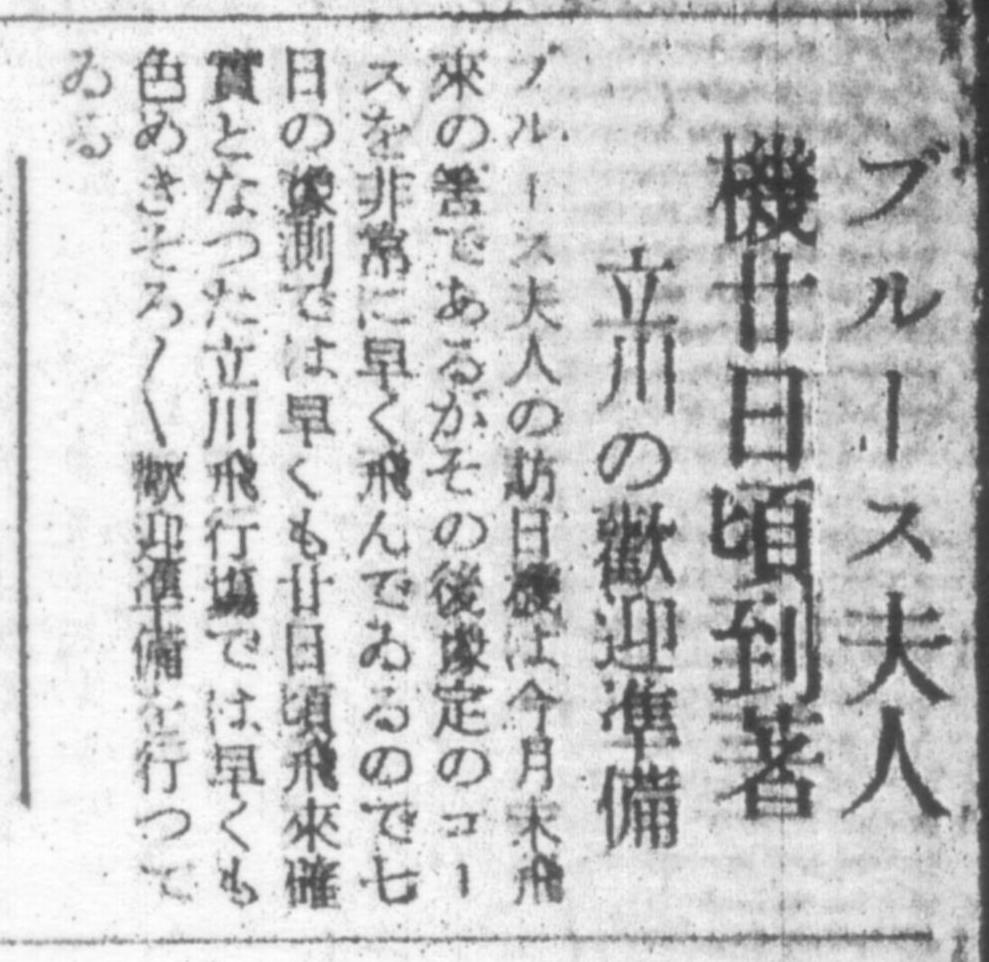 ブルース夫人
機廿日頃到著
立川の歡迎準備
ブルース夫人の訪日機は今月末飛
來の筈であるがその後豫定のコー
スを非常に早く飛んでゐるので七
日の豫測では早くも廿日頃飛來確
實となつた立川飛行場では早くも
色めきそろ〱歡迎準備を行つて
ゐる